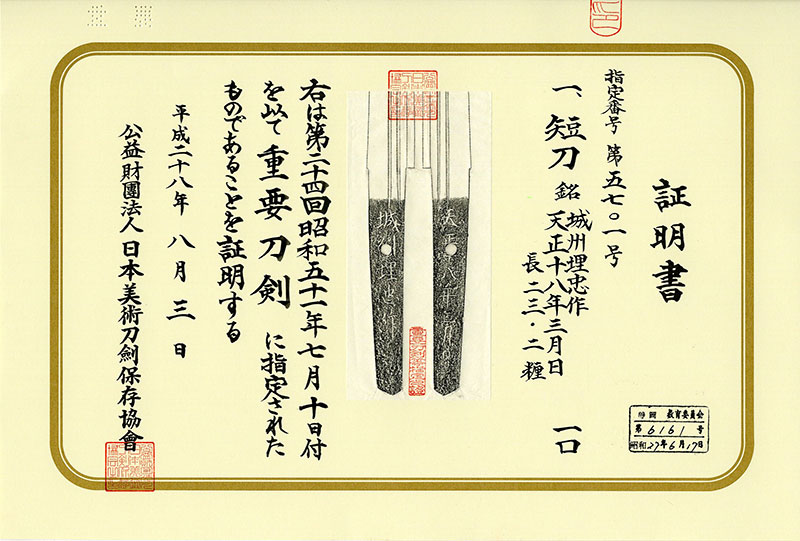 証明書
指定番号 第五七〇一号
一、短刀 銘 城州埋忠作
天正十八年三月日
長二三・二糎
一口
右は第二十四回昭和五十一年七月十日付
を以て重要刀剣に指定された
ものであることを証明する
平成二十八年八月三日
公益財團法人 日本美術刀劍保存協會
城州埋忠作
静岡 教育委員会
第6161号
昭和27年6月17日